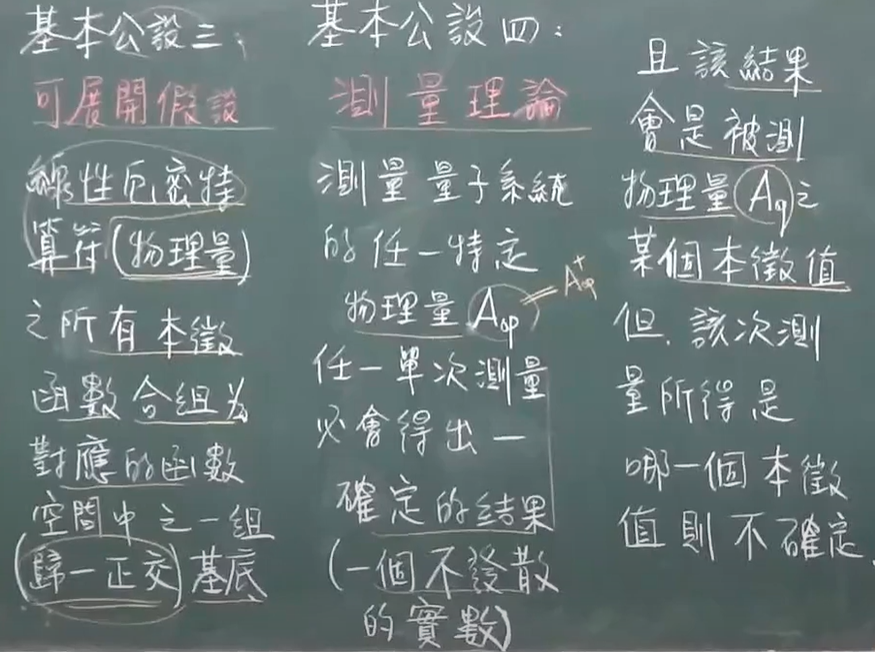 基本公設三:
可展開假設
線性厄密特
算符(物理量)
之所有本徵
函數合組為
對應的函數
空間中之一組
(歸一正交)基底
基本公設四:
測量理論
測量量子系統
的任一特定
物理量 Aop = A⁺op
任一單次測量
必會得出一
確定的結果
(一個不發散
的實數)
且該結果
會是被測
物理量 Aop 之
某個本徵值
但,該次測
量所得是
哪一個本徵
值則不確定.